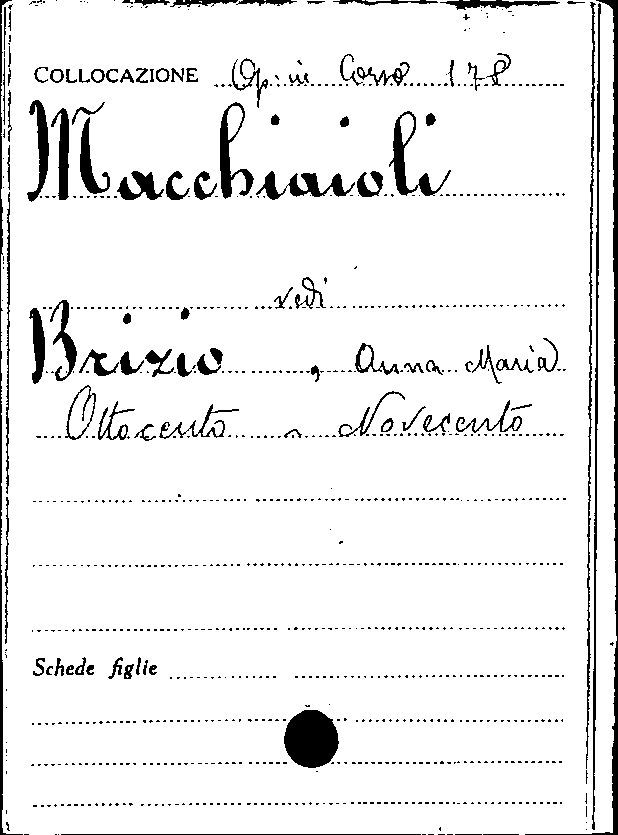 COLLOCAZIONE Op. in Corso 178
Macchiaioli
vedi
Brizio, Anna Maria
Ottocento - Novecento
Schede figlie